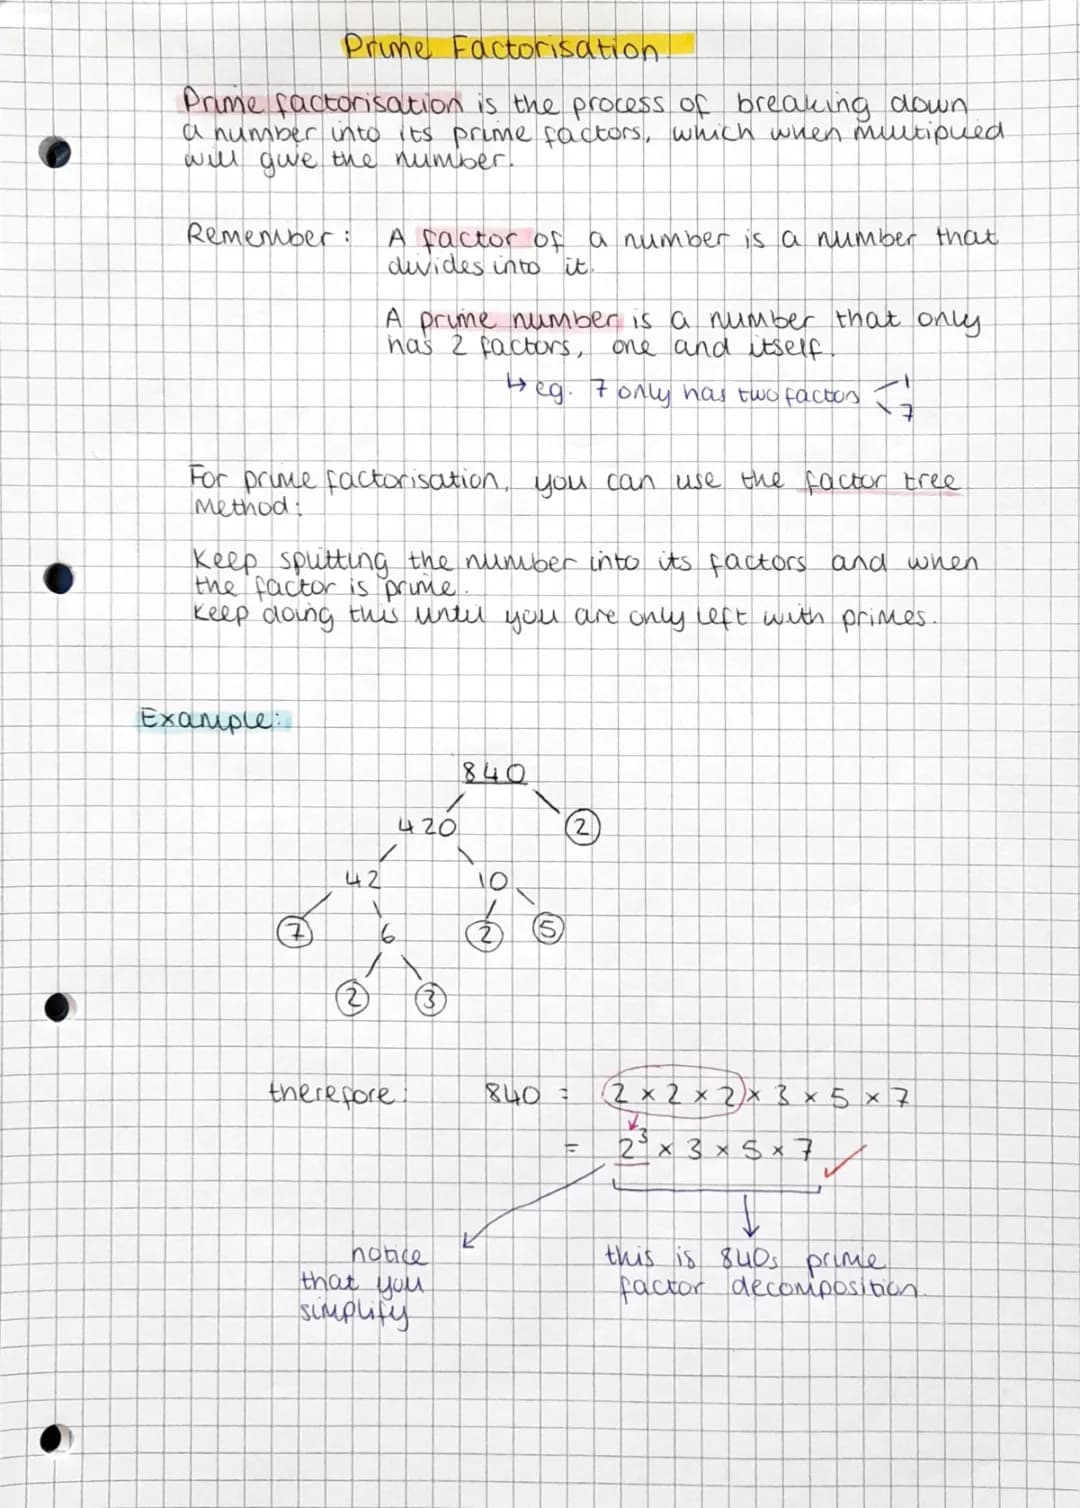 Prime Factorisation
Prime factorisation is the process of breaking down
a number into its prime factors, which when multiplied
will give the number.
Remember: A factor of a number is a number that
divides into it.
A prime number is a number that only
has 2 factors, one and itself.
↳ eg. 7 only has two factors 1
7
For prime factorisation, you can use the factor tree
Method:
Keep splitting the number into its factors and when
the factor is prime.
Keep doing this until you are only left with primes.
Example:
840
420 2
42 10
7 6 2 5
2 3
therefore: 840 = 2 × 2 × 2 × 3 × 5 × 7
= 2³ × 3 × 5 × 7 ✓
notice
that you
simplify
this is 840s prime
factor decomposition.